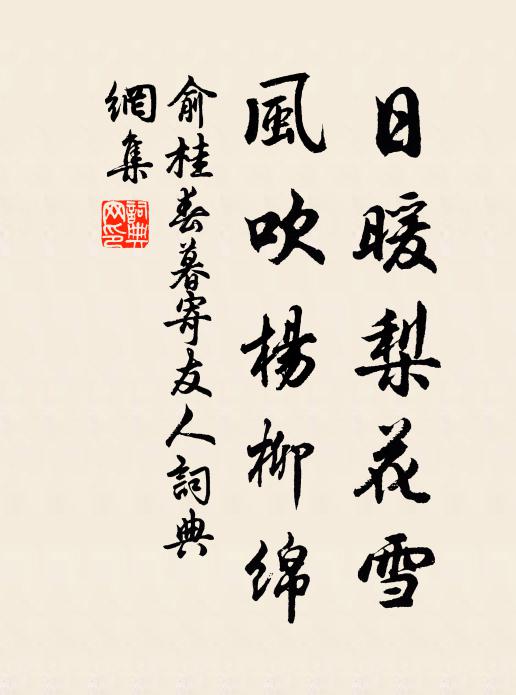 日暖梨花雪
風吹楊柳綿
俞桂春暮寄友人詞典
網集
詞典
网印